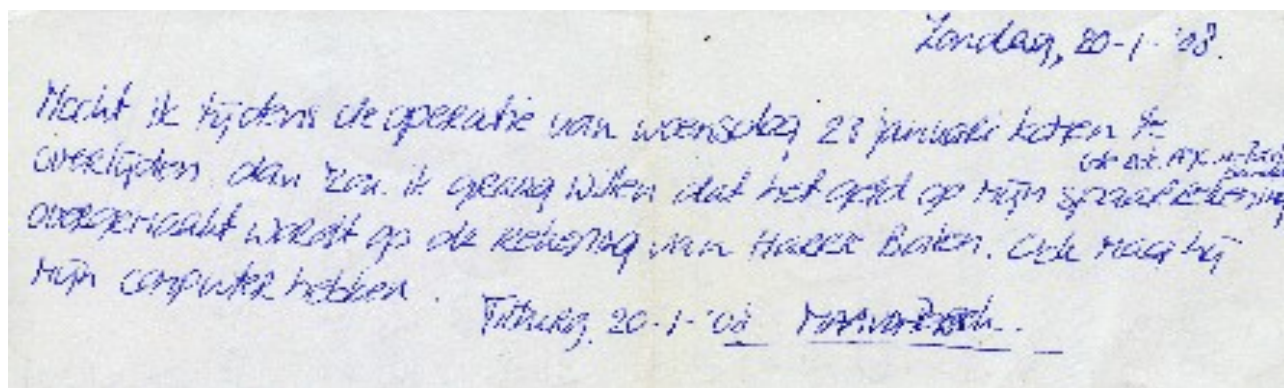 Zondag, 20-1-'08.
Mocht ik tijdens de operatie van woensdag 23 januari komen te
overlijden dan zou ik graag willen dat het geld op mijn spaarrekening
overgemaakt wordt op de rekening van Harrie Baten. Ook mag hij
mijn computer hebben.
Tilburg, 20-1-'08